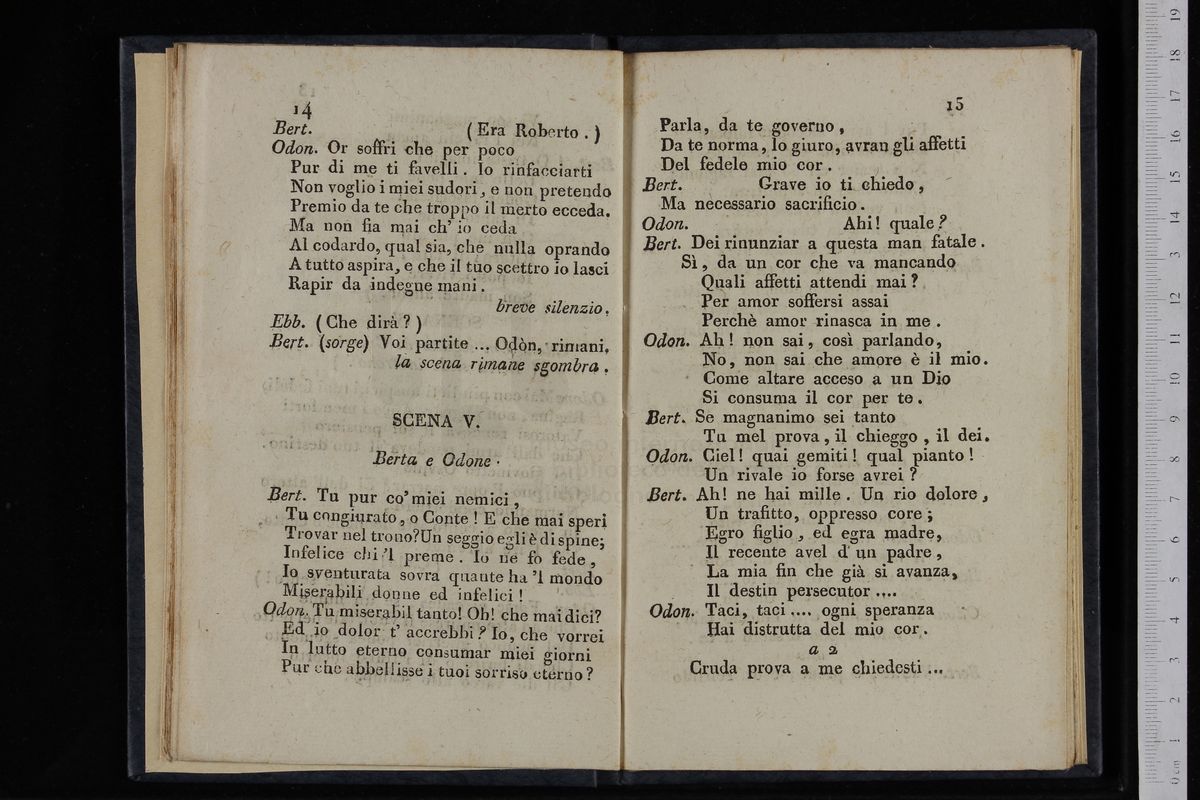 14
Bert. (Era Roberto.)
Odon. Or soffri che per poco
Pur di me ti favelli. Io rinfacciarti
Non voglio i miei sudori, e non pretendo
Premio da te che troppo il merto ecceda.
Ma non fia mai ch' io ceda
Al codardo, qual sia, che nulla oprando
A tutto aspira, e che il tuo scettro io lasci
Rapir da indegne mani.
breve silenzio.
Ebb. (Che dirà?)
Bert. (sorge) Voi partite ... Odòn, rimani,
la scena rimane sgombra.
SCENA V.
Berta e Odone.
Bert. Tu pur co' miei nemici,
Tu congiurato, o Conte! E che mai speri
Trovar nel trono? Un seggio egli è di spine;
Infelice chi 'l preme. Io ne fo fede,
Io sventurata sovra quante ha 'l mondo
Miserabili donne ed infelici!
Odon. Tu miserabil tanto! Oh! che mai dici?
Ed io dolor t' accrebbi? Io, che vorrei
In lutto eterno consumar miei giorni
Pur che abbellisse i tuoi sorriso eterno?
15
Parla, da te governo,
Da te norma, lo giuro, avran gli affetti
Del fedele mio cor.
Bert. Grave io ti chiedo,
Ma necessario sacrificio.
Odon. Ahi! quale?
Bert. Dei rinunziar a questa man fatale.
Sì, da un cor che va mancando
Quali affetti attendi mai?
Per amor soffersi assai
Perchè amor rinasca in me.
Odon. Ah! non sai, così parlando,
No, non sai che amore è il mio.
Come altare acceso a un Dio
Si consuma il cor per te.
Bert. Se magnanimo sei tanto
Tu mel prova, il chieggo, il dei.
Odon. Ciel! quai gemiti! qual pianto!
Un rivale io forse avrei?
Bert. Ah! ne hai mille. Un rio dolore,
Un trafitto, oppresso core;
Egro figlio, ed egra madre,
Il recente avel d' un padre,
La mia fin che già si avanza,
Il destin persecutor ....
Odon. Taci, taci .... ogni speranza
Hai distrutta del mio cor.
a 2
Cruda prova a me chiedesti ...
0 cm 1 2 3 4 5 6 7 8 9 10 11 12 13 14 15 16 17 18 19